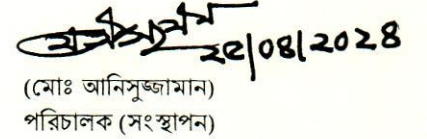 ২৫/০৪/২০২৪
(মোঃ আনিসুজ্জামান)
পরিচালক (সংস্থাপন)